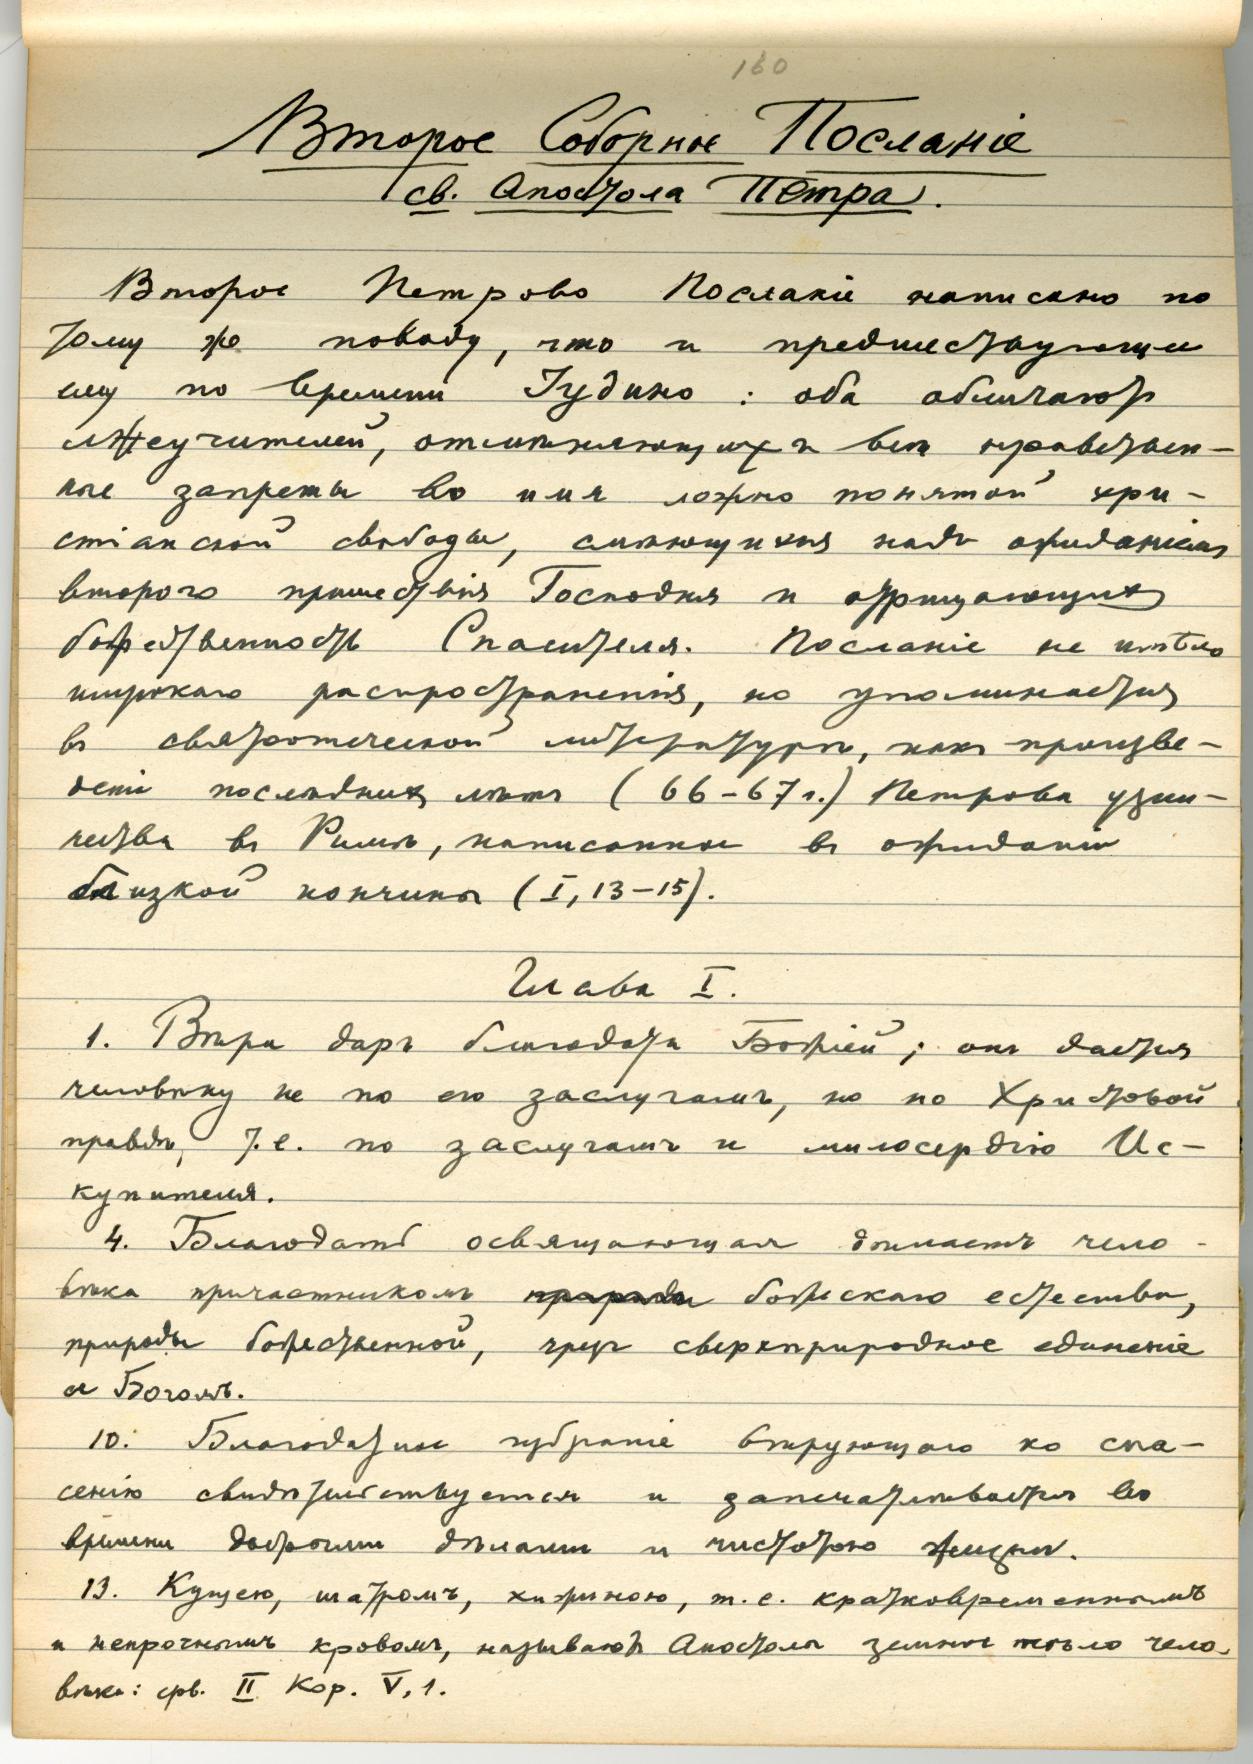 160
Второе Соборное Посланіе
св. Апостола Петра.
Второе Петрово Посланіе написано по
тому же поводу, что и предшествующее
ему по времени Іудино: оба обличают
лжеучителей, отмѣняющихъ всѣ нравствен-
ные запреты во имя ложно понятой хри-
стіанской свободы, смѣющихся надъ ожиданіемъ
второго пришествія Господня и отрицающихъ
божественность Спасителя. Посланіе не имѣло
широкаго распространенія, но упоминается
въ святоотеческой литературѣ, какъ произве-
деніе послѣднихъ лѣтъ (66-67 г.) Петрова узни-
чества въ Римѣ, написанное въ ожиданіи
близкой кончины (I, 13-15).
Глава I.
1. Вѣра даръ благодати Божіей; онъ дается
человѣку не по его заслугамъ, но по Христовой
правдѣ, т.е. по заслугамъ и милосердію Ис-
купителя.
4. Благодать освящающая дѣлаетъ чело-
вѣка причастникомъ природы божескаго естества,
природы божественной, чрезъ сверхприродное единеніе
съ Богомъ.
10. Благодатное избраніе вѣрующаго ко спа-
сенію свидѣтельствуется и запечатлѣвается во
времени добрыми дѣлами и чистотою жизни.
13. Кущею, шатромъ, хижиною, т.е. кратковременнымъ
и непрочнымъ кровомъ, называютъ Апостолы земное тѣло чело-
вѣка: срв. II Кор. V, 1.